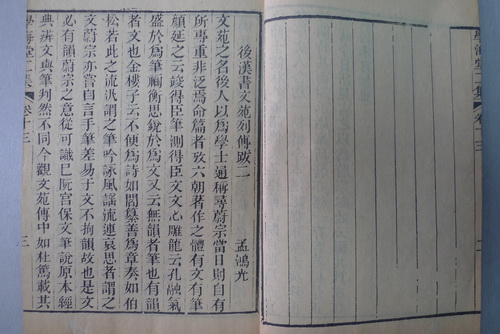 學海堂二集
卷十三
後漢書文苑列傳跋二
孟鴻光
文苑之名後人以爲學士通稱尋蔚宗當日則自有
所專重非泛焉命篇者攷六朝著作之體有文有筆
顏延之云竣得臣筆測得臣文文心雕龍云孔融氣
盛於爲筆禰衡思銳於爲文又云無韻者筆也有韻
者文也金樓子云不便爲詩如閻纂善爲章奏如伯
松若此之流汎謂之筆吟詠風謠流連哀思者謂之
文蔚宗亦嘗自言手筆差易于文不拘韻故也是文
必有韻蔚宗之意從可識已阮宮保文筆說原本經
典辨文與筆判然不同今觀文苑傳中如杜篤載其
學海堂二集
卷十三
三